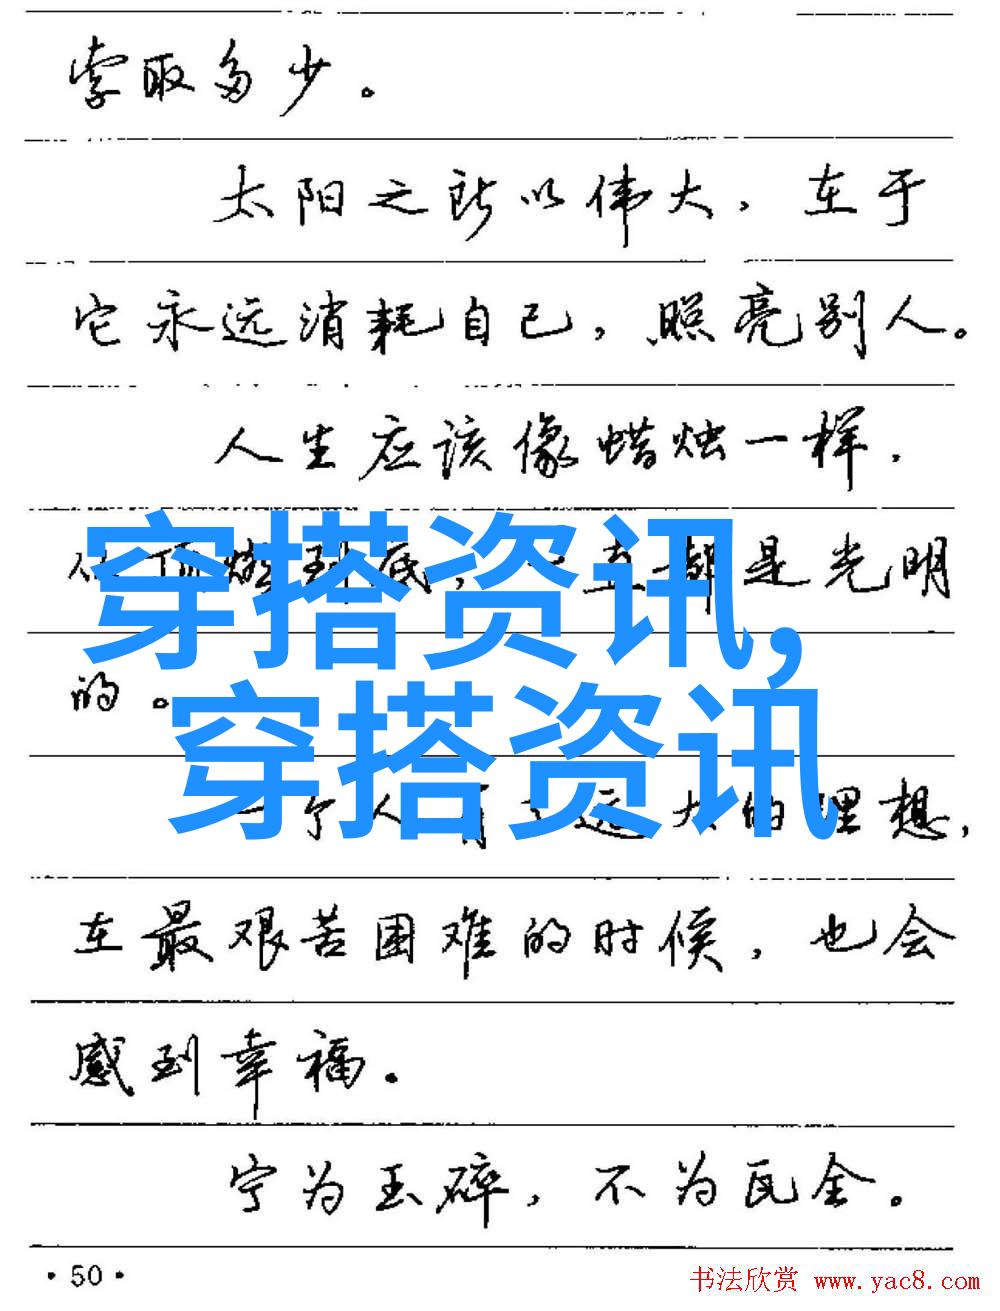 索取多少。
太阳之所以伟大，在于
它永远消耗自己，照亮别人。
人生应该像蜡烛一样，
从顶燃到底，一直都是光明
穿搭资讯，
的。
穿搭资讯
一个人有了远大的理想，
在最艰苦困难的时候，也会
感到幸福。
宁为玉碎，不为瓦全。
·50·
书法欣赏 www.yac8.com